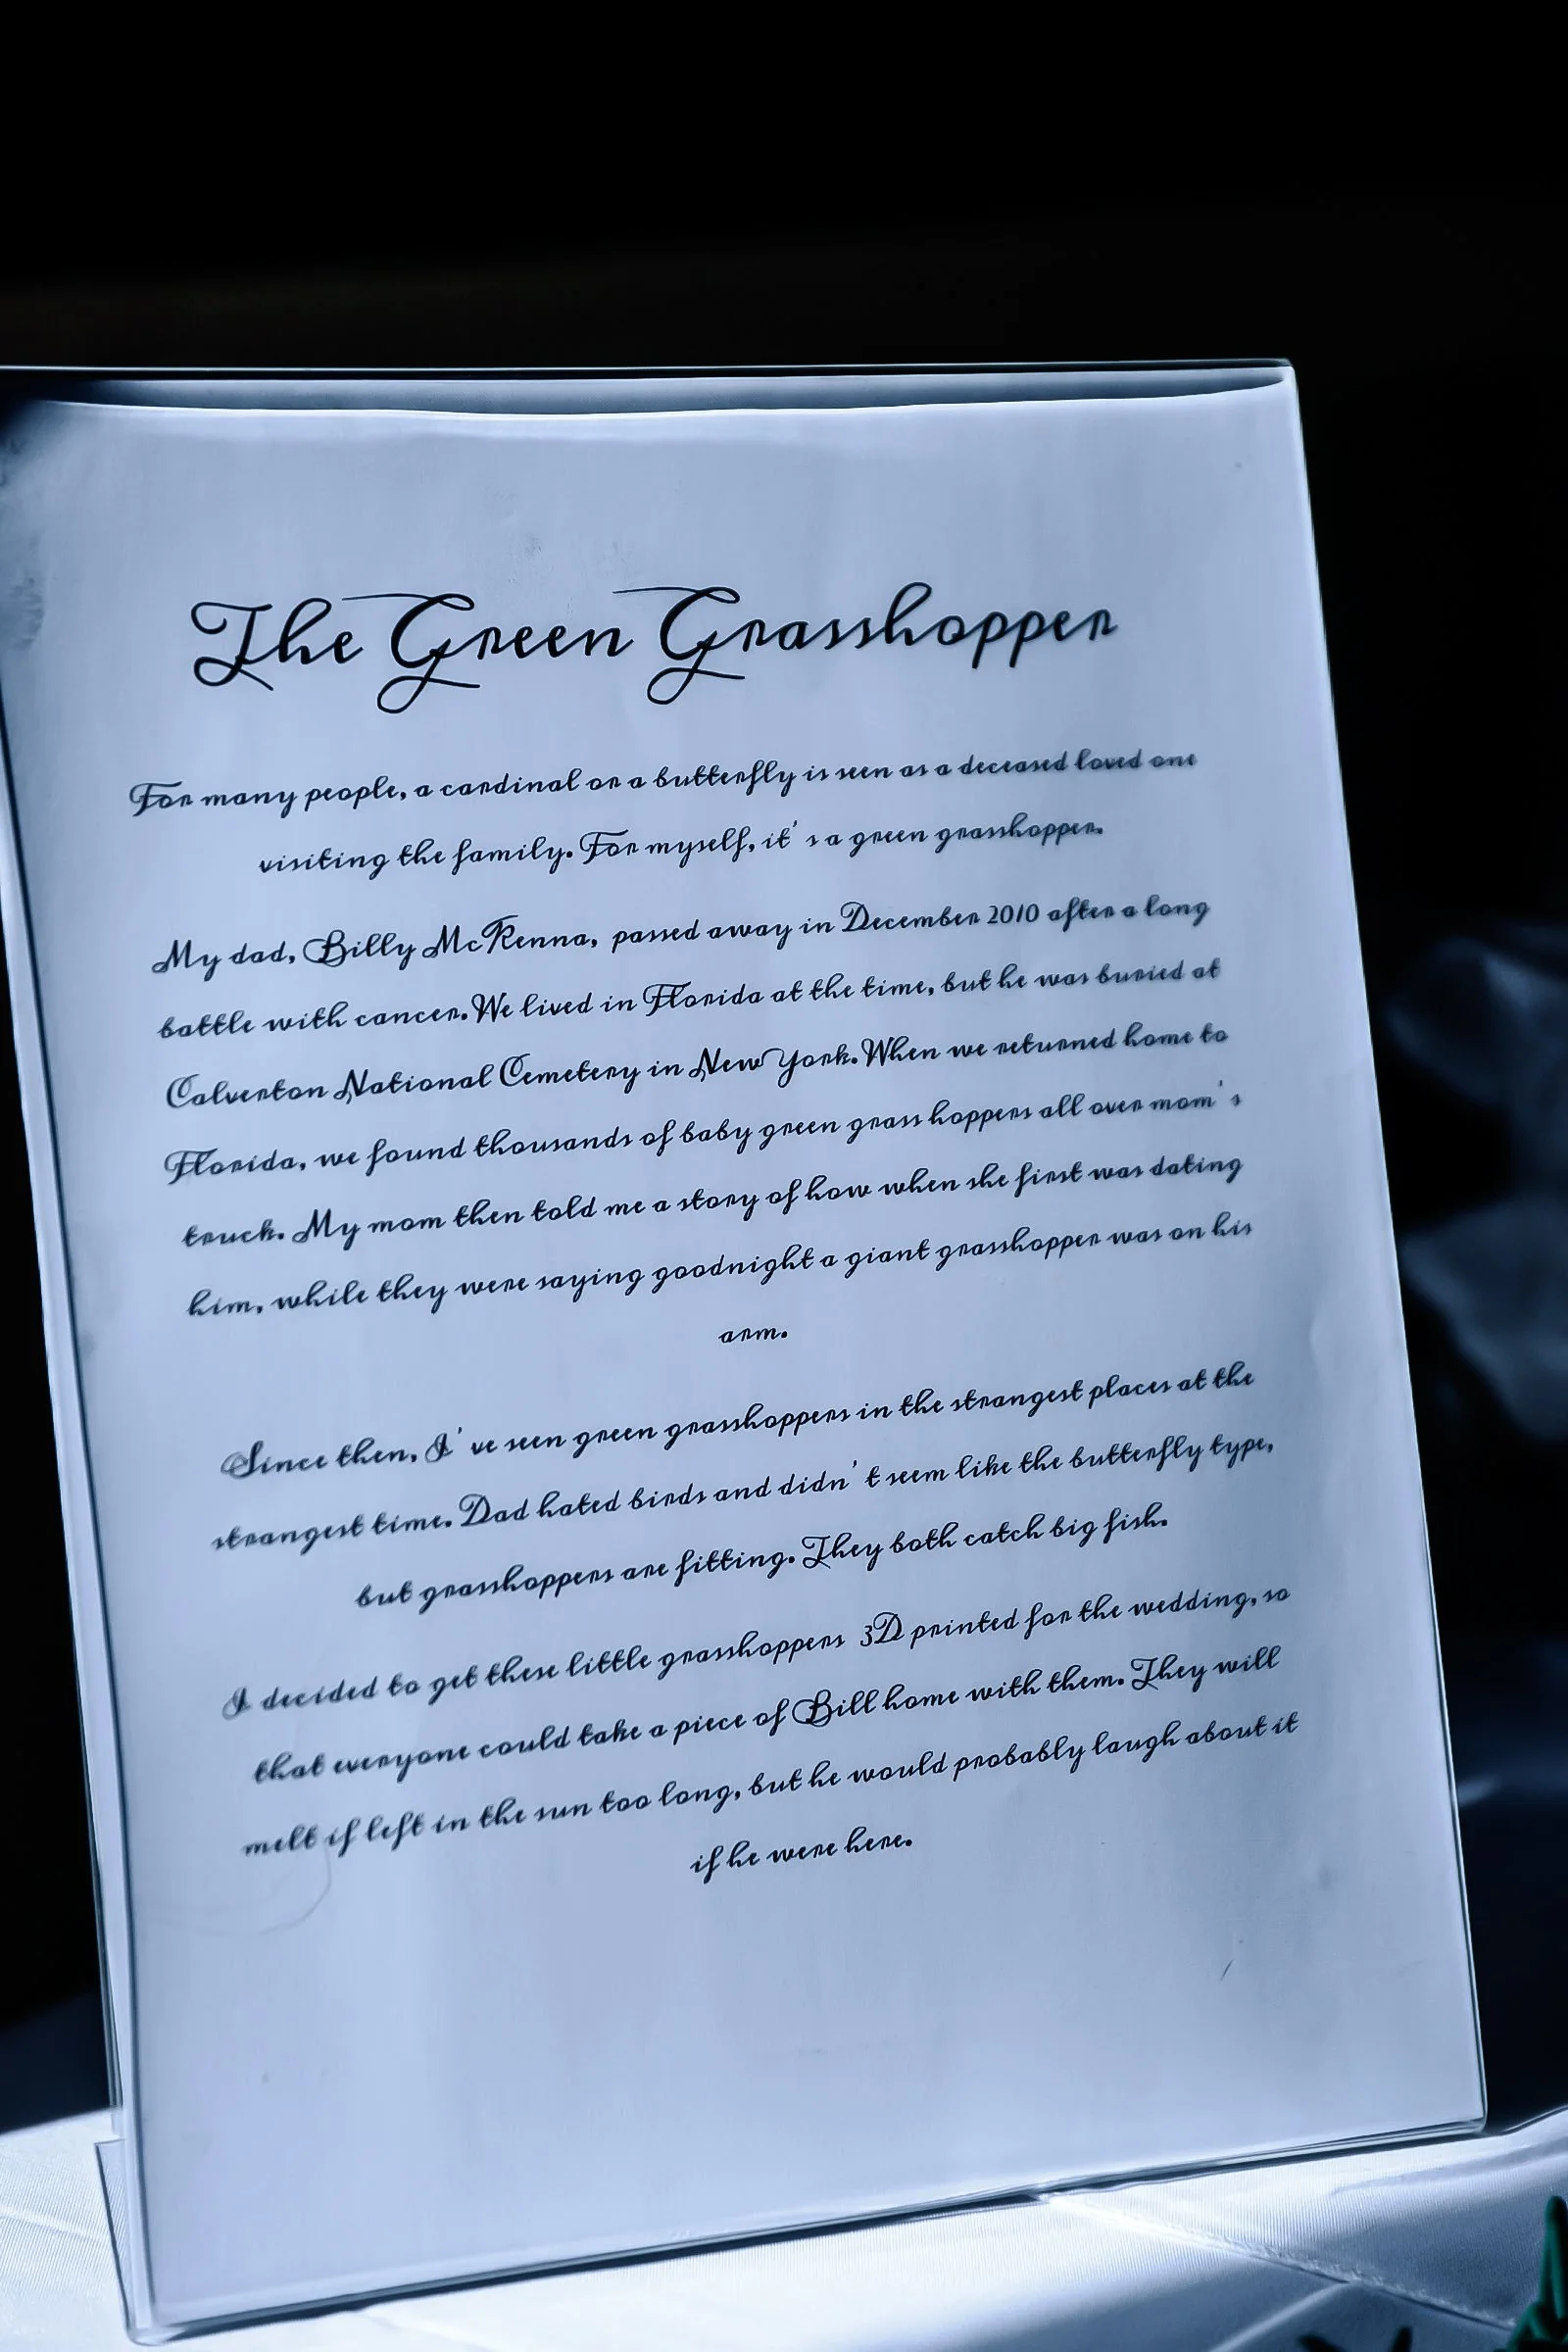 The Green Grasshopper
For many people, a cardinal or a butterfly is seen as a deceased loved one
visiting the family. For myself, it's a green grasshopper.
My dad, Billy McKenna, passed away in December 2010 after a long
battle with cancer. We lived in Florida at the time, but he was buried at
Calverton National Cemetery in New York. When we returned home to
Florida, we found thousands of baby green grass hoppers all over mom's
truck. My mom then told me a story of how when she first was dating
him, while they were saying goodnight a giant grasshopper was on his
arm.
Since then, I've seen green grasshoppers in the strangest places at the
strangest time. Dad hated birds and didn't seem like the butterfly type,
but grasshoppers are fitting. They both catch big fish.
I decided to get these little grasshoppers 3D printed for the wedding, so
that everyone could take a piece of Bill home with them. They will
melt if left in the sun too long, but he would probably laugh about it
if he were here.